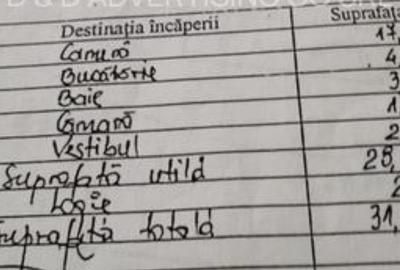 Destinația încăperii Suprafața
Cameră 17,
Bucătărie 4,
Baie 3
Cămară 1
Vestibul 2
Suprafață utilă 25,
Logie 2
Suprafață totală 31,